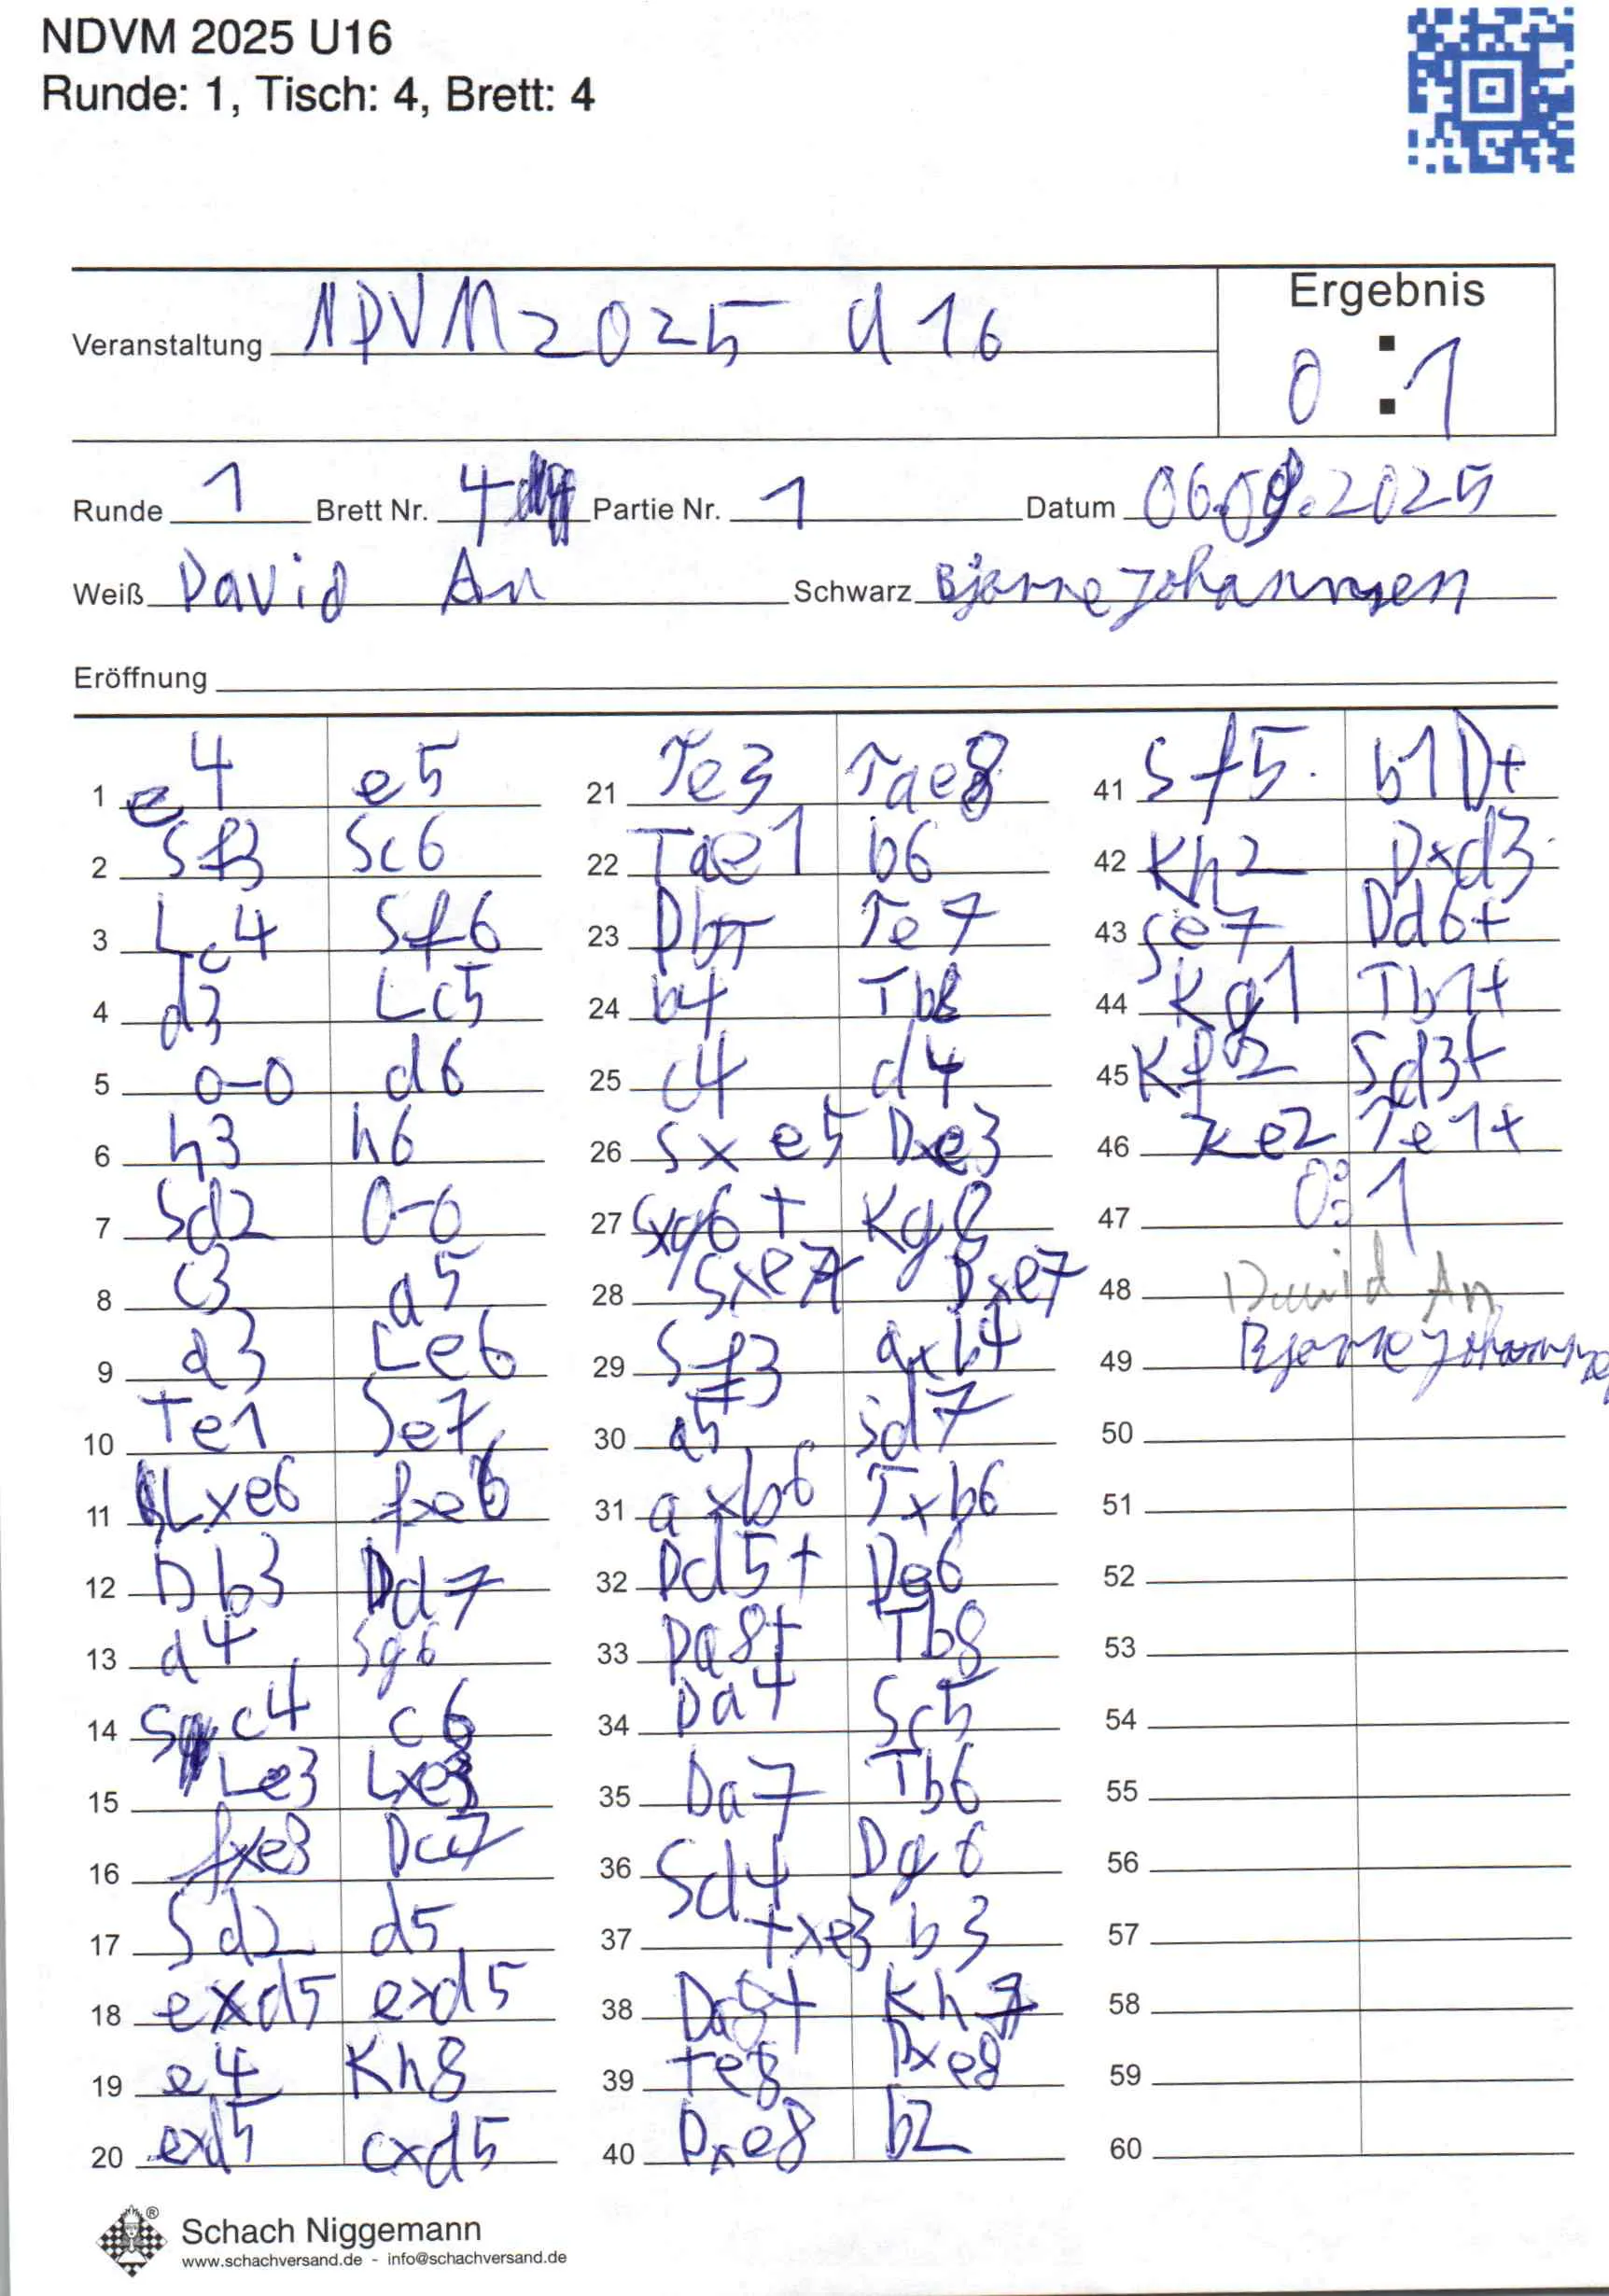 NDVM 2025 U16
Runde: 1, Tisch: 4, Brett: 4
Veranstaltung NDVM 2025 U16
Ergebnis
0 : 1
Runde 1 Brett Nr. 4 Partie Nr. 1 Datum 06.09.2025
Weiß David An Schwarz Bjarne Johannsen
Eröffnung
1 e4 e5
2 Sf3 Sc6
3 Lc4 Sf6
4 d3 Lc5
5 0-0 d6
6 h3 h6
7 Sd2 0-0
8 c3 a5
9 a3 Le6
10 Te1 Se7
11 Lxe6 fxe6
12 Db3 Dd7
13 a4 Sg6
14 Sc4 c6
15 Le3 Lxe3
16 fxe3 Dc7
17 Sd2 d5
18 exd5 exd5
19 e4 Kh8
20 exd5 cxd5
21 Te3 Tae8
22 Tae1 b6
23 Db5 Te7
24 b4 Tb8
25 c4 d4
26 Sxe5 Dxe3
27 Sxg6+ Kg8
28 Sxe7 Dxe7
29 Sf3 axb4
30 a5 Sd7
31 axb6 Txb6
32 Dd5+ De6
33 Da8+ Tb8
34 Da4 Sc5
35 Da7 Tb6
36 Sd4 Dg6
37 Txe3 b3
38 Da8+ Kh7
39 Te8 Dxe8
40 Dxe8 b2
41 Sf5 b1D+
42 Kh2 Dxd3
43 Se7 Dd6+
44 Kg1 Tb1+
45 Kf2 Sd3+
46 Ke2 Te1+
47 0:1
48 David An
49 Bjarne Johannsen
50
51
52
53
54
55
56
57
58
59
60
Schach Niggemann
www.schachversand.de - info@schachversand.de